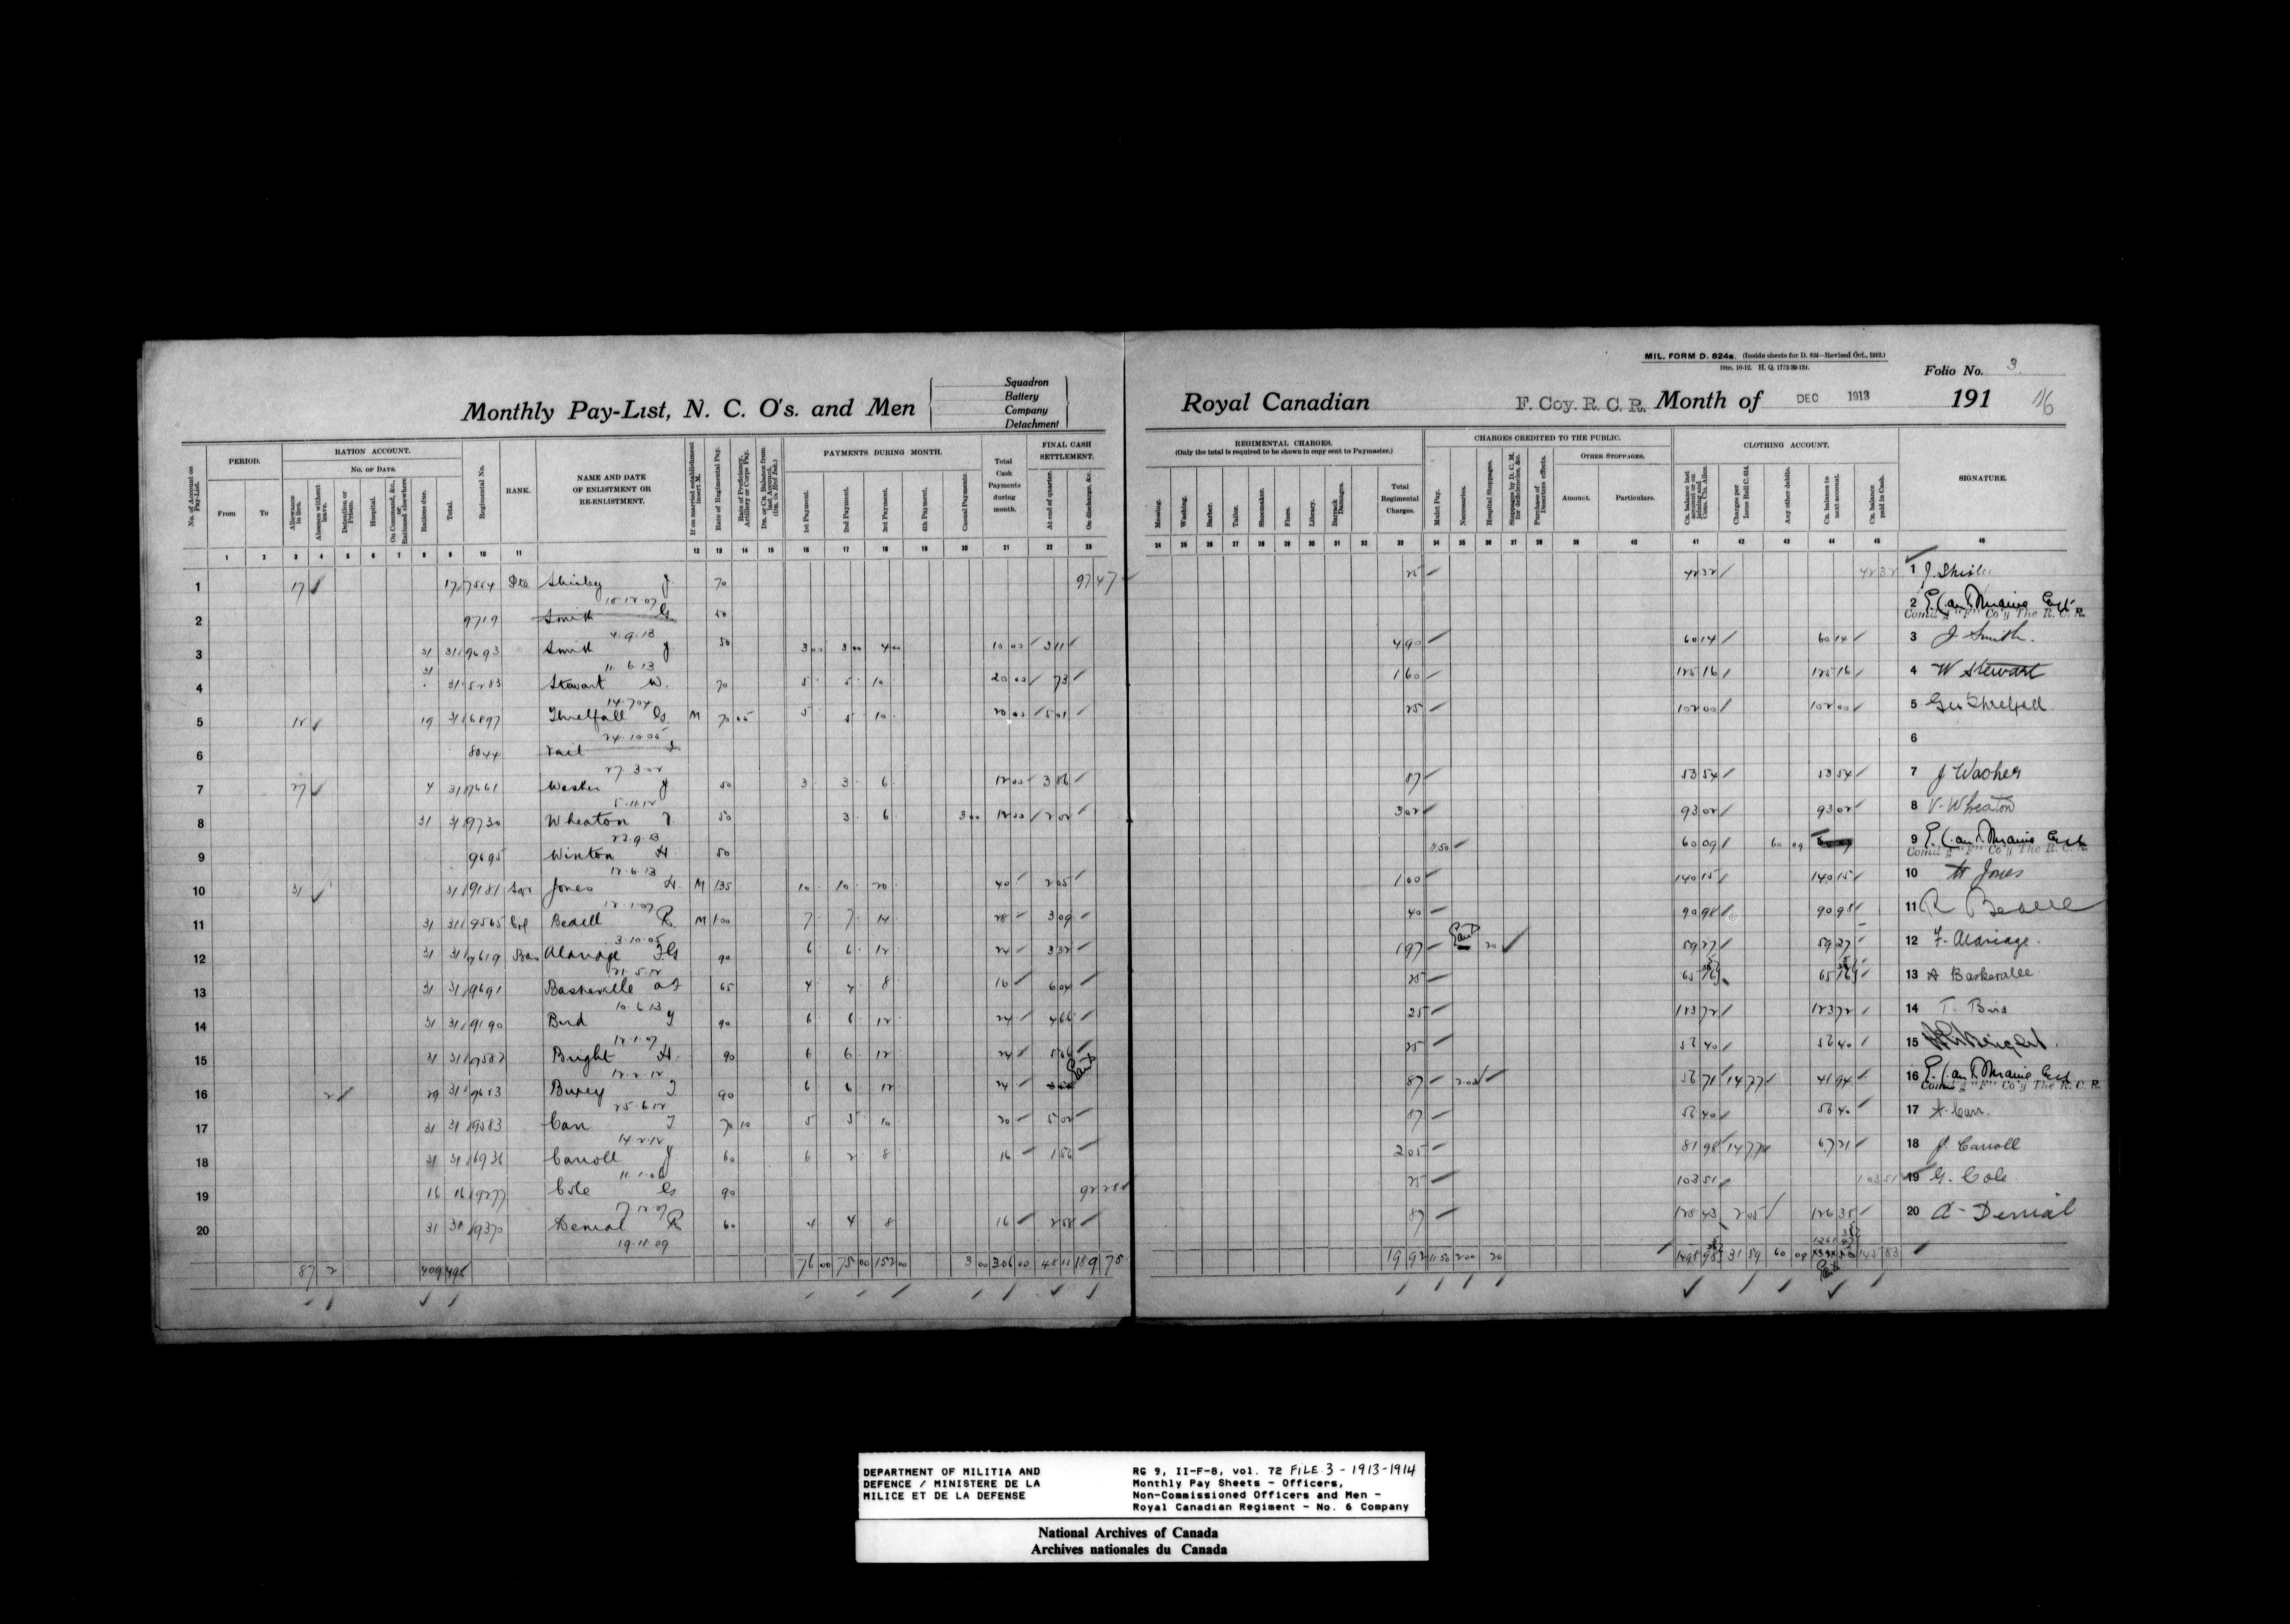 MIL. FORM D. 824a. (Inside sheets for D. 824—Revised Oct., 1912.)
10m. 10-12. H. Q. 1772-39-134.
Folio No. 3.
Monthly Pay-List, N. C. O's. and Men
Squadron
Battery
Company
Detachment
Royal Canadian F. Coy. R. C. R. Month of DEC 1913 191
No. of Account on Pay-List.
PERIOD.
From
To
RATION ACCOUNT.
No. of Days.
Allowance in lieu.
Absence without leave.
Detention or Prison.
Hospital.
On Command, &c., or Rationed elsewhere
Rations due.
Total.
Regimental No.
RANK.
NAME AND DATE OF ENLISTMENT OR RE-ENLISTMENT.
If on married establishment insert M.
Rate of Regimental Pay.
Rate of Proficiency, Artillery or Corps Pay.
Dr. or Cr. Balance from last Account. (Dr. in Red Ink.)
PAYMENTS DURING MONTH.
1st Payment.
2nd Payment.
3rd Payment.
4th Payment.
Casual Payments.
Total Cash Payments during month.
FINAL CASH SETTLEMENT.
At end of quarter.
On discharge, &c.
REGIMENTAL CHARGES.
(Only the total is required to be shown in copy sent to Paymaster.)
Messing.
Washing.
Barber.
Tailor.
Shoemaker.
Fines.
Library.
Barrack Damages.
Total Regimental Charges.
CHARGES CREDITED TO THE PUBLIC.
Mulct Pay.
Necessaries.
Hospital Stoppages.
Stoppages by D. C. M. for deficiencies, &c.
Purchase of Deserters effects.
OTHER STOPPAGES.
Amount.
Particulars.
CLOTHING ACCOUNT.
Charges per Issue Roll C. 61.
Any other debits.
Cr. balance to next account.
Cr. balance paid in Cash.
SIGNATURE.
1 2 3 4 5 6 7 8 9 10 11 12 13 14 15 16 17 18 19 20 21 22 23 24 25 26 27 28 29 30 31 32 33 34 35 36 37 38 39 40 41 42 43 44 45 46
1 17 17 7554 Pte Shirley J 70 97 47 25 42 32 42 32 1
2 9719 Smith G 50 2 Com'd'g "F" Co'y The R. C. R.
4.9.13
3 31 31 9693 Smith J 50 3 00 3 00 4 00 10 00 3 11 4 90 60 14 60 14 3 J. Smith.
11.6.13
4 31 31 5283 Stewart W. 70 5 5 10 20 00 73 1 60 125 16 125 16 4 W Stewart
14.7.04
5 12 19 31 6897 Threlfall G. M 70 05 5 5 10 20 00 5 01 25 102 00 102 00 5 Geo Threlfall
24.10.05
6 8044 6
27.3.02
7 27 4 31 9661 Washer J 50 3 3 6 12 00 3 86 87 53 54 53 54 7 J Washer
5.11.12
8 31 31 9730 Wheaton V. 50 3 6 3 00 12 00 2 02 3 02 93 02 93 02 8 V. Wheaton
22.9.13
9 9695 Winton H. 50 11 50 60 09 60 09 9 Com'd'g "F" Co'y The R. C. R.
12.6.13
10 31 31 9181 Jones H. M 1 35 10 10 20 40 2 05 1 00 140 15 140 15 10 H Jones
12.1.07
11 31 31 9565 Bedell R. M 1 00 7 7 14 28 3 09 40 90 98 90 98 11 R Bedell
3.10.05
12 31 31 9619 Aldridge FG 90 6 6 12 24 3 32 1 97 20 59 27 59 27 12 F. Aldridge.
21.5.12
13 31 31 9691 Baskerville 65 4 4 8 16 6 04 25 13 A Baskerville
10.6.13
14 31 31 9190 Bird T 90 6 6 12 24 4 66 25 123 72 123 72 14 T. Bird
12.1.07
15 31 31 9582 Bright H. 90 6 6 12 24 25 56 40 56 40 15
12.2.12
16 2 29 31 9653 90 6 6 12 24 87 2 00 56 71 14 77 41 94 16 Com'd'g "F" Co'y The R. C. R.
25.6.12
17 31 31 9583 Carr 70 10 5 5 10 20 5 02 87 56 40 56 40 17
14.2.12
18 31 31 6936 Carroll J 60 6 2 8 16 1 56 2 05 81 98 14 77 67 21 18 J. Carroll
19 16 16 9277 Cole G 90 92 28 25 103 51 103 51 19 G. Cole
17.12.07
20 31 31 9370 Denial R 60 4 4 8 16 87 128 43 2 05 126 38 20 Denial
19.11.09
87 2 409 498 76 00 75 00 152 00 3 00 306 00 48 11 189 75 19 92 11 50 2 00 20 31 59 60 09 145 83
DEPARTMENT OF MILITIA AND
DEFENCE / MINISTERE DE LA
MILICE ET DE LA DEFENSE
RG 9, II-F-8, vol. 72 FILE 3 - 1913-1914
Monthly Pay Sheets - Officers,
Non-Commissioned Officers and Men -
Royal Canadian Regiment - No. 6 Company
National Archives of Canada
Archives nationales du Canada